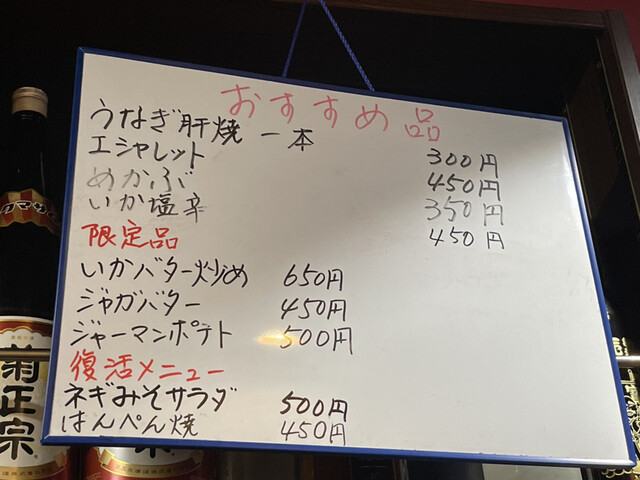 おすすめ品
うなぎ肝焼 一本 300円
エシャレット 450円
めかぶ 350円
いか塩辛 450円
限定品
いかバター炒め 650円
ジャガバター 450円
ジャーマンポテト 500円
復活メニュー
ネギみそサラダ 500円
はんぺん焼 450円
菊正宗